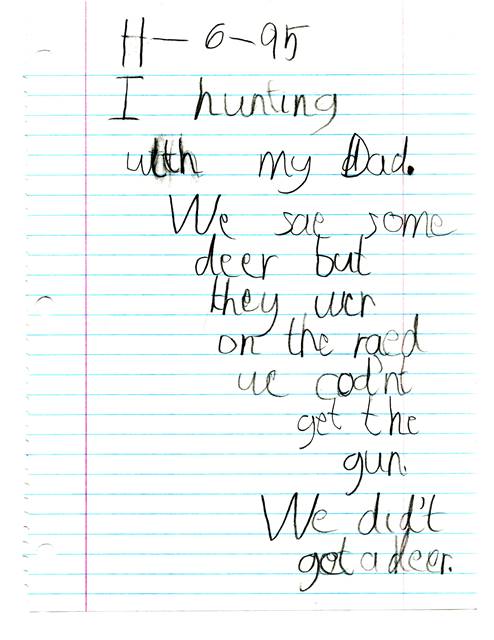 11-6-95
I hunting
with my Dad.
We sae some
deer but
they wer
on the raed
we cod'nt
get the
gun.
We did't
got a deer.